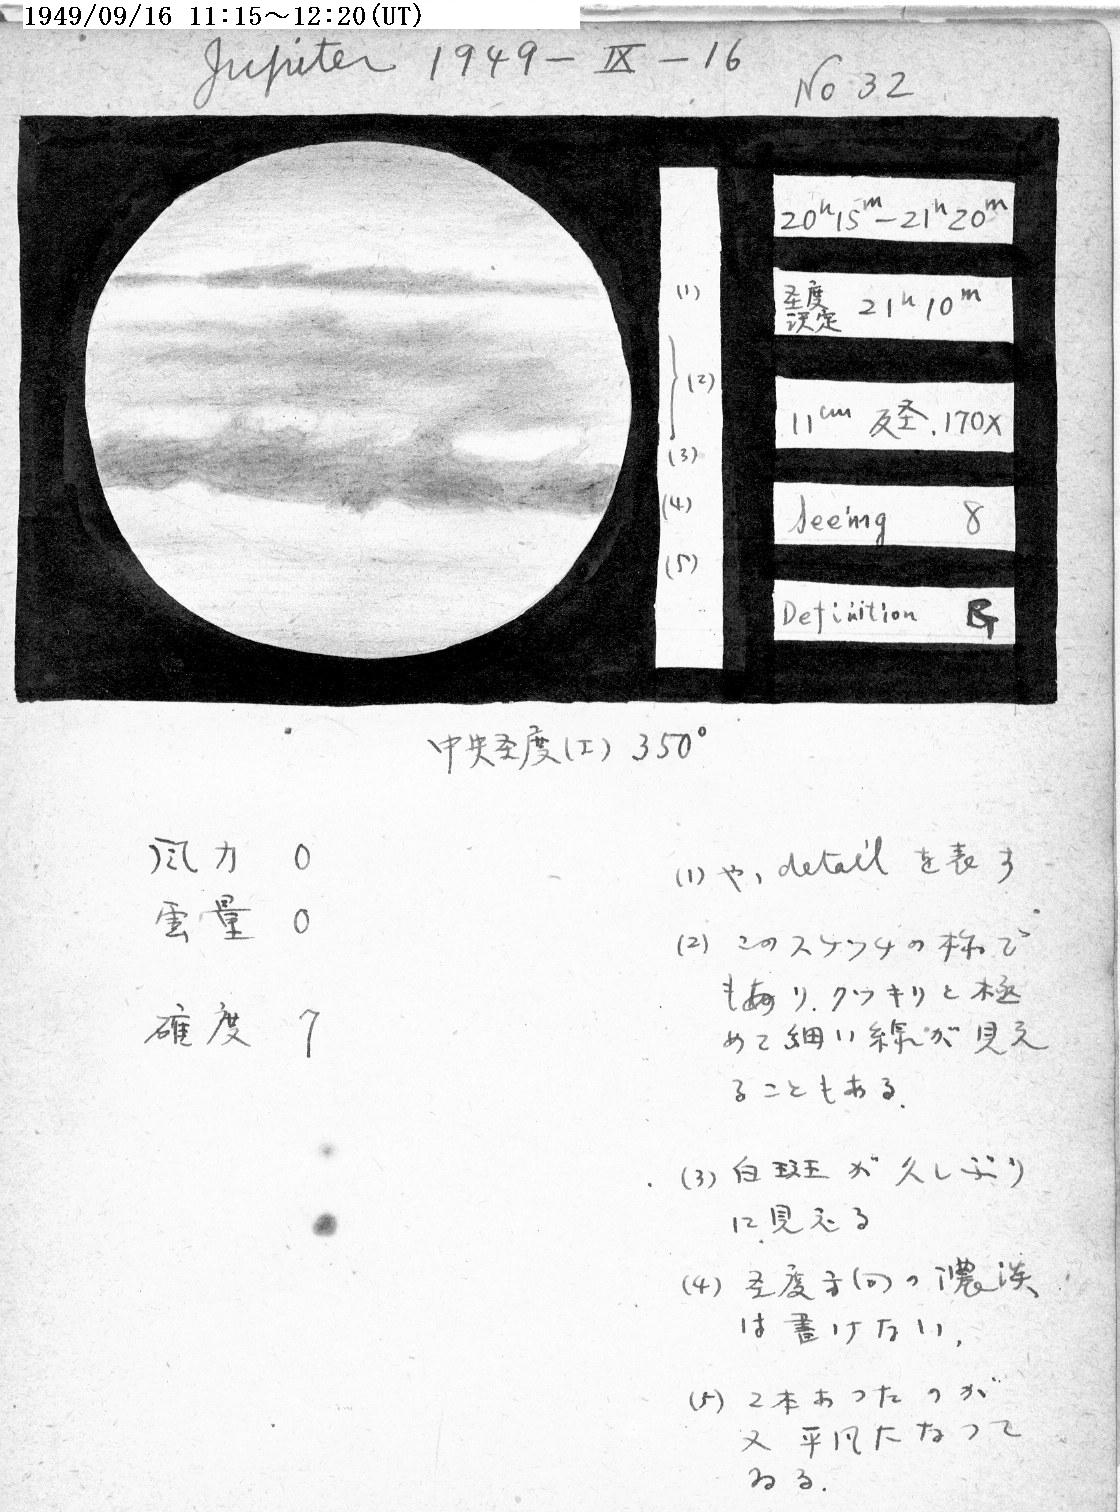 1949/09/16 11:15～12:20(UT)
Jupiter 1949-IX-16
No 32
20h15m-21h20m
(1)
圣度
決定 21h10m
(2)
11cm 反圣. 170X
(3)
(4)
Seeing 8
(5)
Definition G
中央圣度(I) 350°
風力 0
雲量 0
確度 7
(1) やゝ detail を表す
(2) このスケッチの様で
もあり. クッキリと極
めて細い線が見え
ることもある.
(3) 白斑が久しぶり
に見える
(4) 圣度方向の濃淡
は書けない.
(5) 2本あったのが
又平凡になって
ゐる.